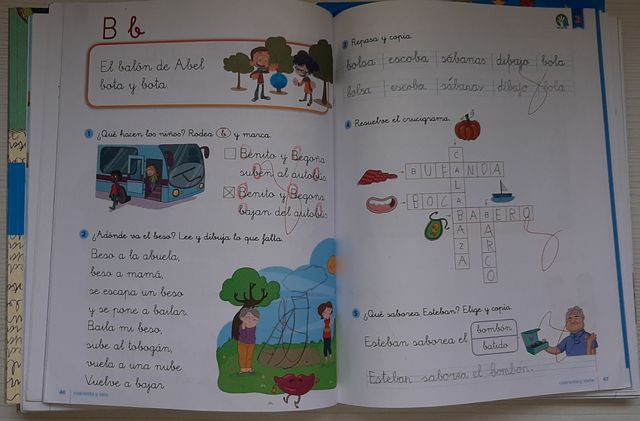 B b
El balón de Abel
bota y bota.
1 ¿Qué hacen los niños? Rodea b y marca.
Benito y Begoña
suben al autobús
Benito y Begoña
bajan del autobús
2 ¿Adónde va el beso? Lee y dibuja lo que falta.
Beso a la abuela,
beso a mamá,
se escapa un beso
y se pone a bailar.
Baila mi beso,
sube al tobogán,
vuela a una nube
Vuelve a bajar
46 cuarenta y seis
2
3 Repasa y copia.
bolsa escoba sábanas dibujo bola
bolsa escoba sábanas dibujo bola
4 Resuelve el crucigrama.
CALABAZA
BUFANDA
BOCA
BABERO
BARCO
5 ¿Qué saborea Esteban? Elige y copia.
Esteban saborea el
bombón
batido
Esteban saborea el bombón.
cuarenta y siete 47